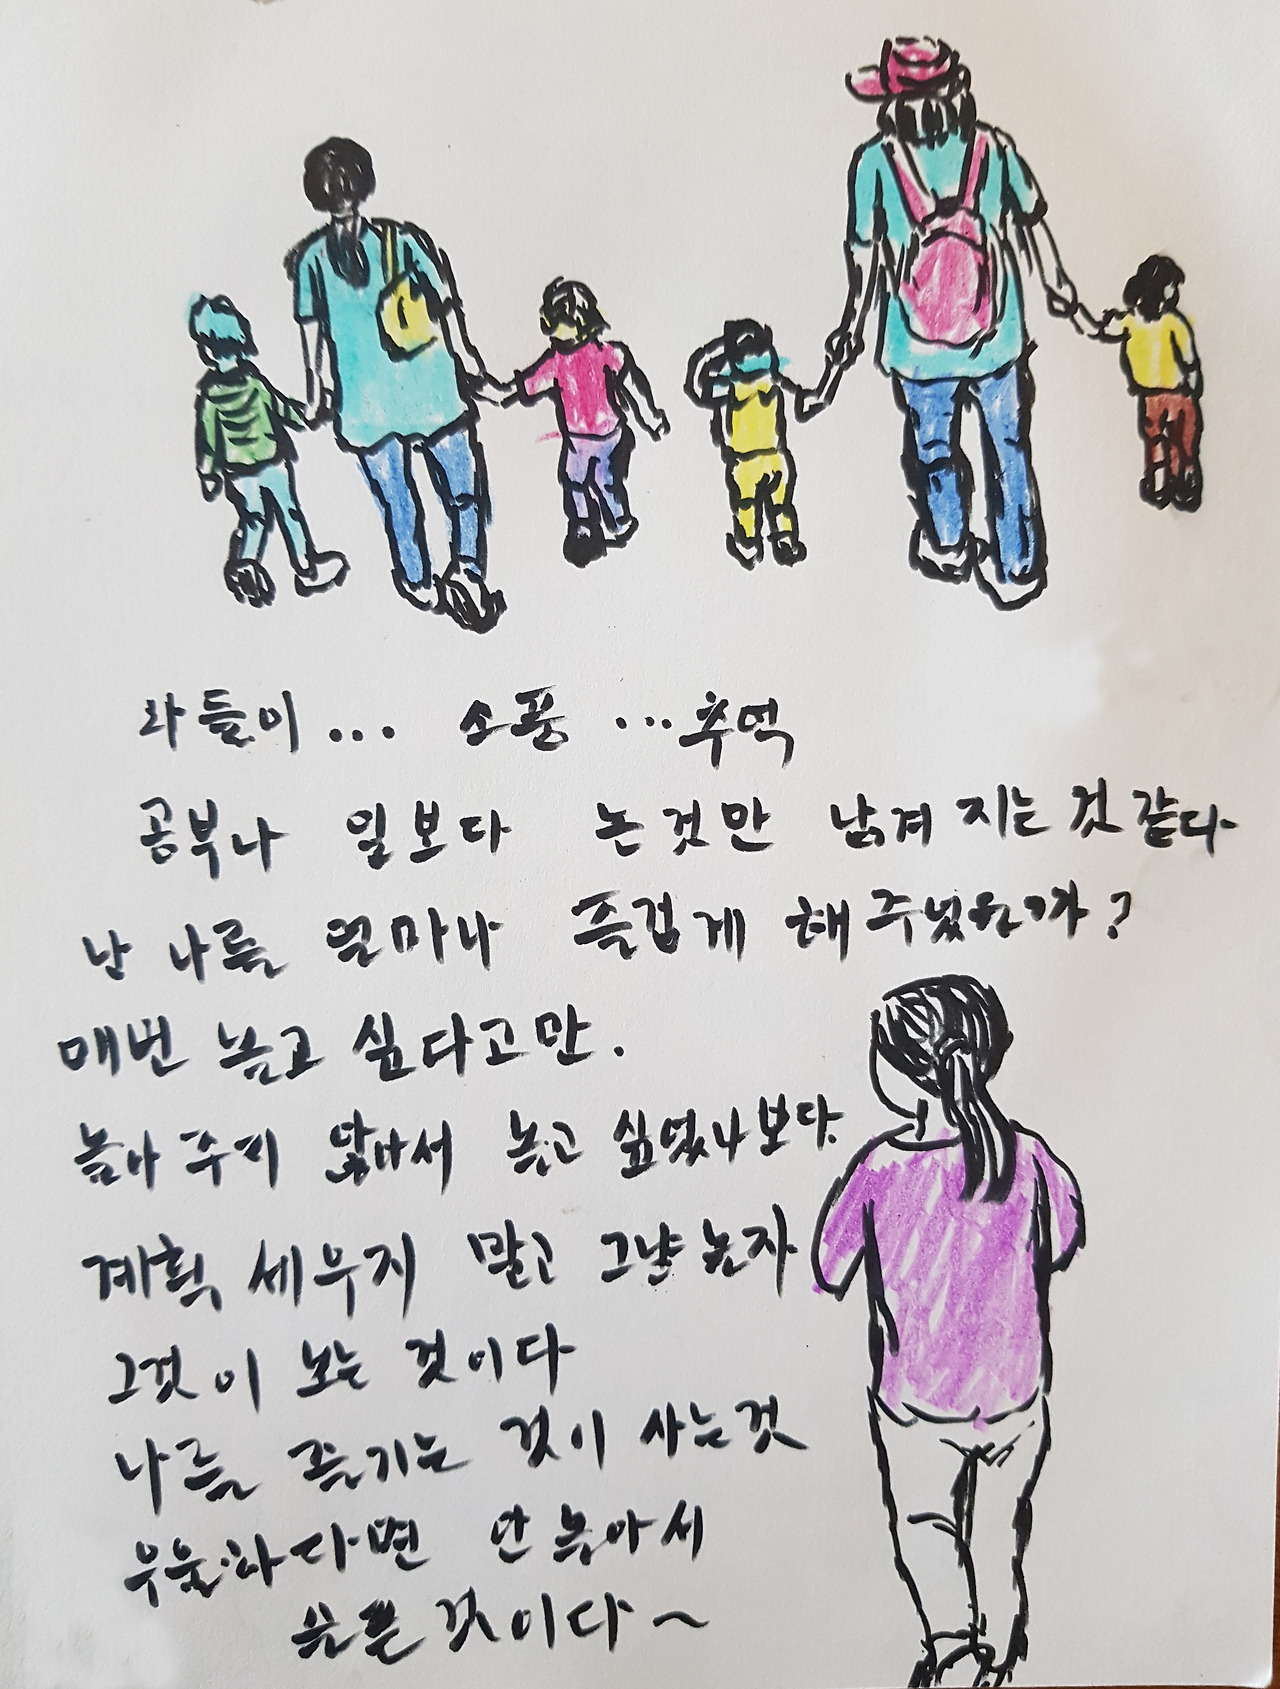 나들이... 소풍 ...추억
공부나 일보다 논것만 남겨 지는 것 같다
난 나를 얼마나 즐겁게 해 주었을까?
매번 놀고 싶다고만.
놀아 주지 않아서 놀고 싶었나보다.
계획 세우지 말고 그냥 놀자
그것이 노는 것이다
나를 즐기는 것이 사는것
우울하다면 안 놀아서
슬픈 것이다~